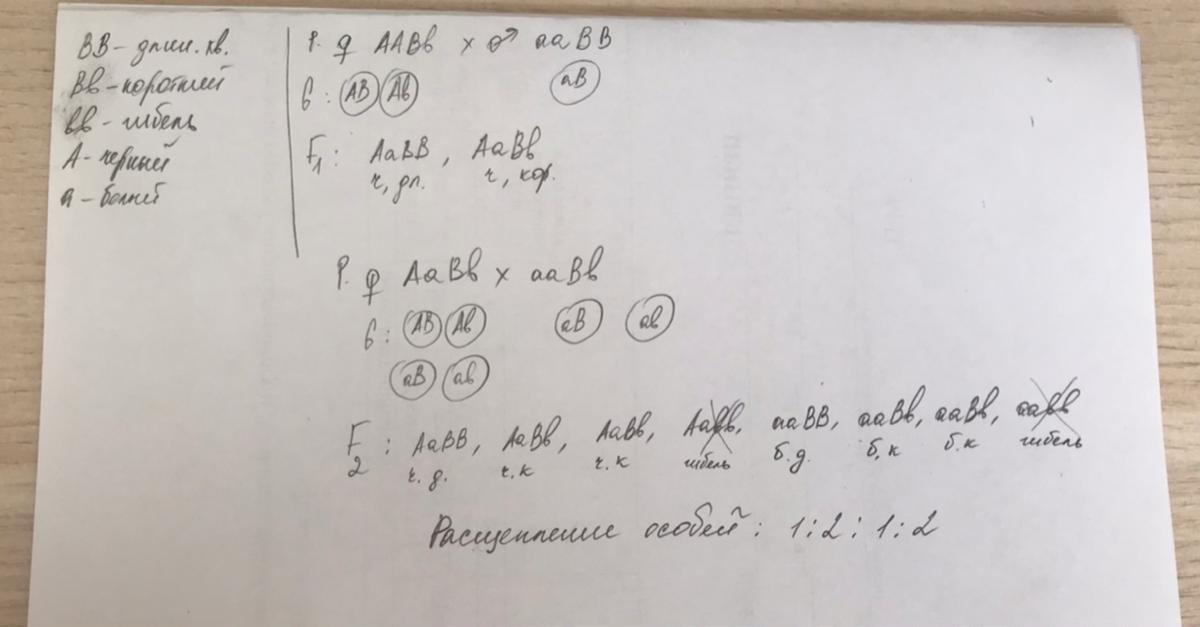 BB - длин. хв.
Bв - короткий
вв - гибель
A - черный
a - белый
P. ♀ AABв x ♂ aaBB
G: AB Aв aB
F1: AaBB, AaBв
ч, дл. ч, кор.
P. ♀ AaBв x aaBв
G: AB Aв aB aв
aB aв
F2: AaBB, AaBв, AaBв, Aaвв, aaBB, aaBв, aaBв, aaвв
ч. д. ч. к ч. к гибель б. д. б. к б. к гибель
Расщепление особей: 1:2:1:2